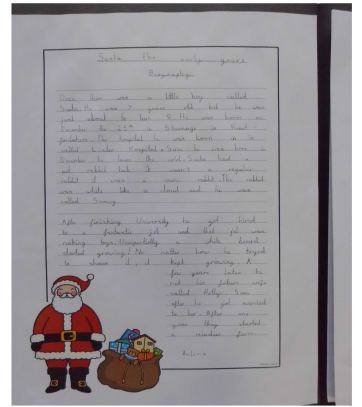 Santa the early years
Once there was a little boy called
Santa. He was 7 years old but he was
just about to turn 8. He was born on
December the 25th in
The hospital he was born in is
called Hospital. Soon he was born in
December he loves the cold. Santa had a
pet rabbit but it wasn't a regular
rabbit it was a snow rabbit. The rabbit
was white like a cloud and he was
called Snowy.
After finishing University he got hired
to a fantastic job and that job was
making toys. Unexpectedly a white beard
started growing! No matter how he
to shave it, it kept growing. A
few years later he
met his future wife
called Holly. Soon
after he got married
to her. After one
year they started
a reindeer farm.